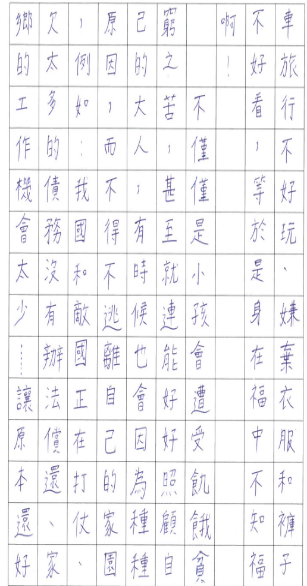 車旅行不好玩、嫌棄衣服和褲子
不好看,等於是身在福中不知福
啊!
不僅僅是小孩會遭受飢餓貧
窮之苦,甚至就連能好好照顧自
己的大人,有時候也會因為種種
原因,而不得不逃離自己的家園
,例如:我國和敵國正在打仗、
欠太多的債務沒有辦法償還、家
鄉的工作機會太少……讓原本還好